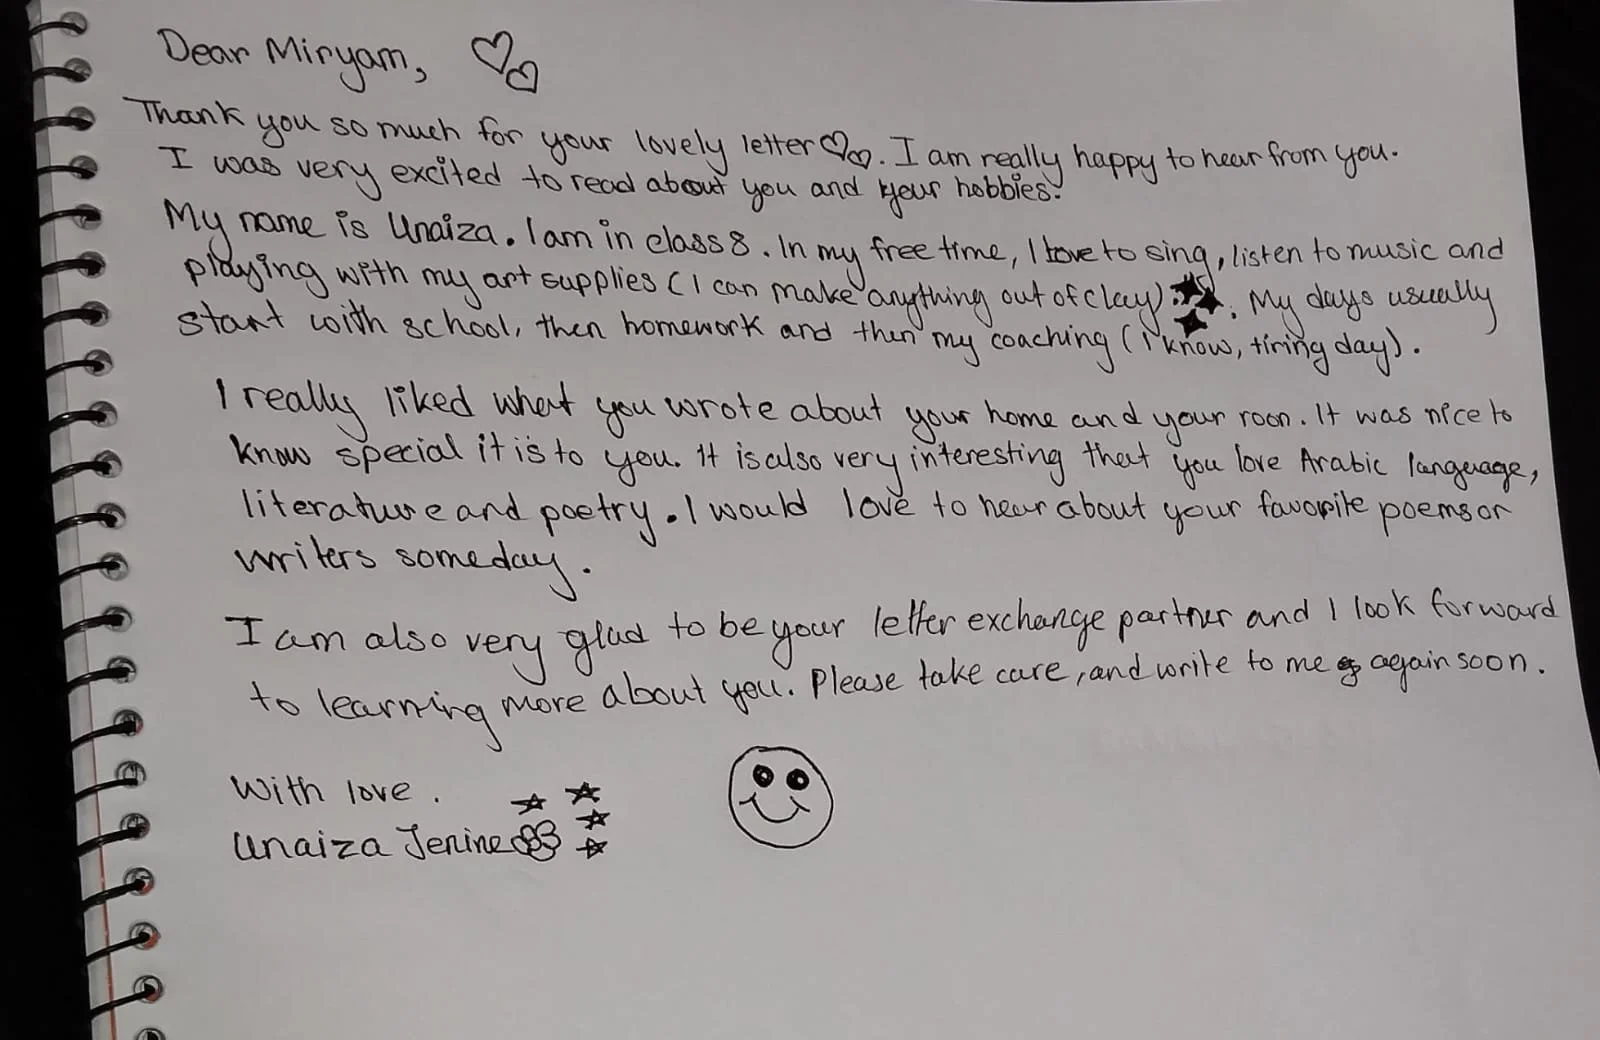 Dear Miryam,
Thank you so much for your lovely letter. I am really happy to hear from you.
I was very excited to read about you and your hobbies.
My name is Unaiza. I am in class 8. In my free time, I love to sing, listen to music and
playing with my art supplies (I can make anything out of clay). My days usually
start with school, then homework and then my coaching (I know, tiring day).
I really liked what you wrote about your home and your roon. It was nice to
know special it is to you. It is also very interesting that you love Arabic language,
literature and poetry. I would love to hear about your favorite poems or
writers someday.
I am also very glad to be your letter exchange partner and I look forward
to learning more about you. Please take care, and write to me again soon.
With love.
Unaiza Jenine